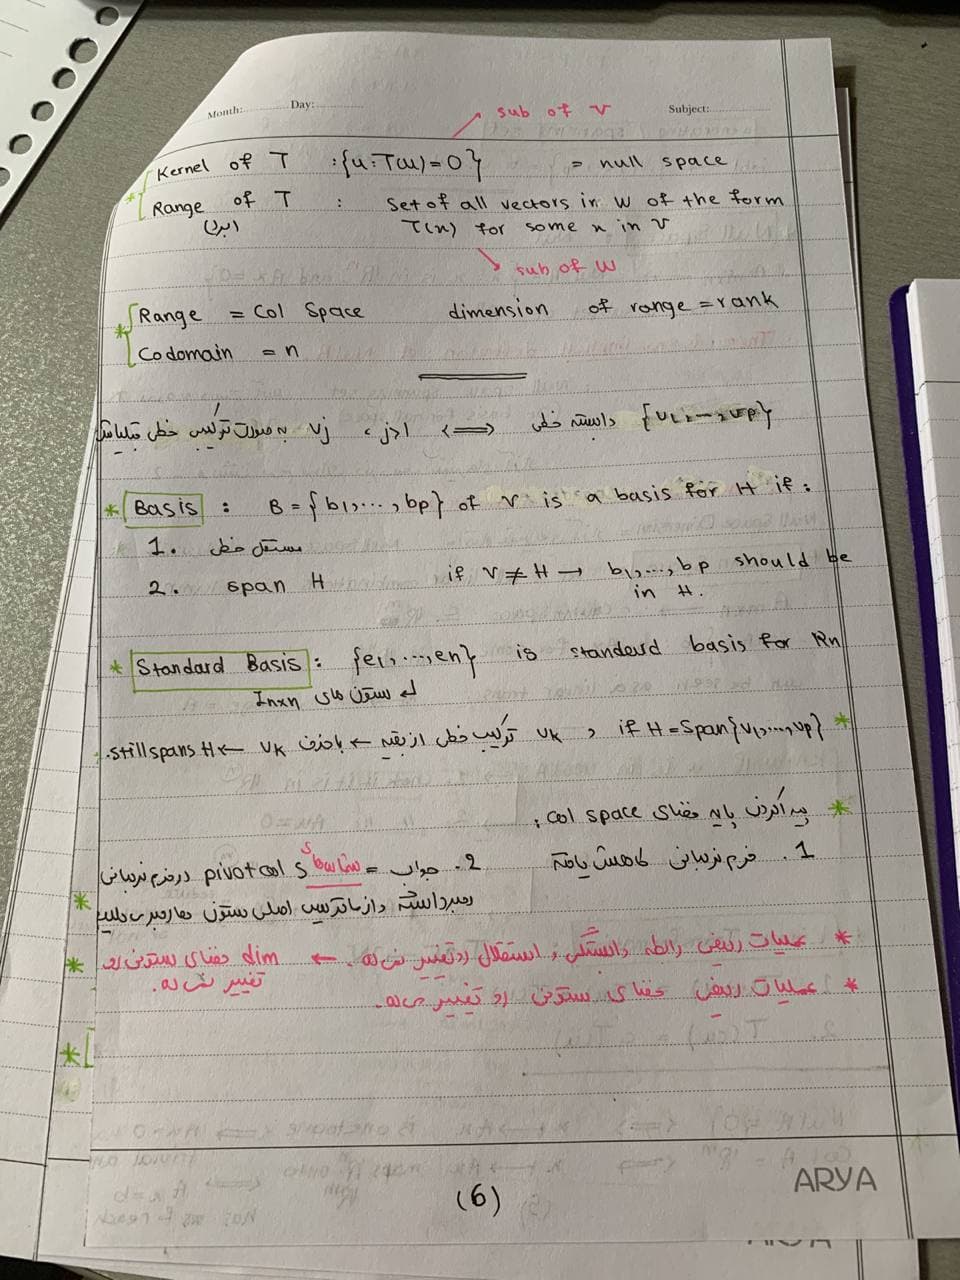 Month: Day: Subject:
sub of V
Kernel of T : {u : T(u) = 0} = null space
Range of T : set of all vectors in W of the form
(برد) T(x) for some x in V
sub of W
Range = Col Space dimension of range = rank
Codomain = n
{v1, ..., vp} وابسته خطی ⟺ j>1 ، vj به صورت ترکیب خطی قبلیاش
* Basis : B = {b1, ..., bp} of V is a basis for H if :
1. مستقل خطی
2. span H if V ≠ H → b1, ..., bp should be
in H.
* Standard Basis : {e1, ..., en} is standard basis for Rn
ستون های Inxn
* if H = Span{v1, ..., vp} , vk ترکیب خطی از بقیه ← با حذف vk ← still spans H.
* پیدا کردن پایه فضای col space :
1. فرم نردبانی کاهش یافته 2. جواب = شماره pivot col s در فرم نردبانی
رو برداشته و از ماتریس اصلی ستون ها رو
* عملیات ردیفی رابطه وابستگی و استقلال رو تغییر نمی ده. ← dim فضای ستونی رو
تغییر نمی ده.
* عملیات ردیفی فضای ستونی رو تغییر می ده.
(6)
ARYA